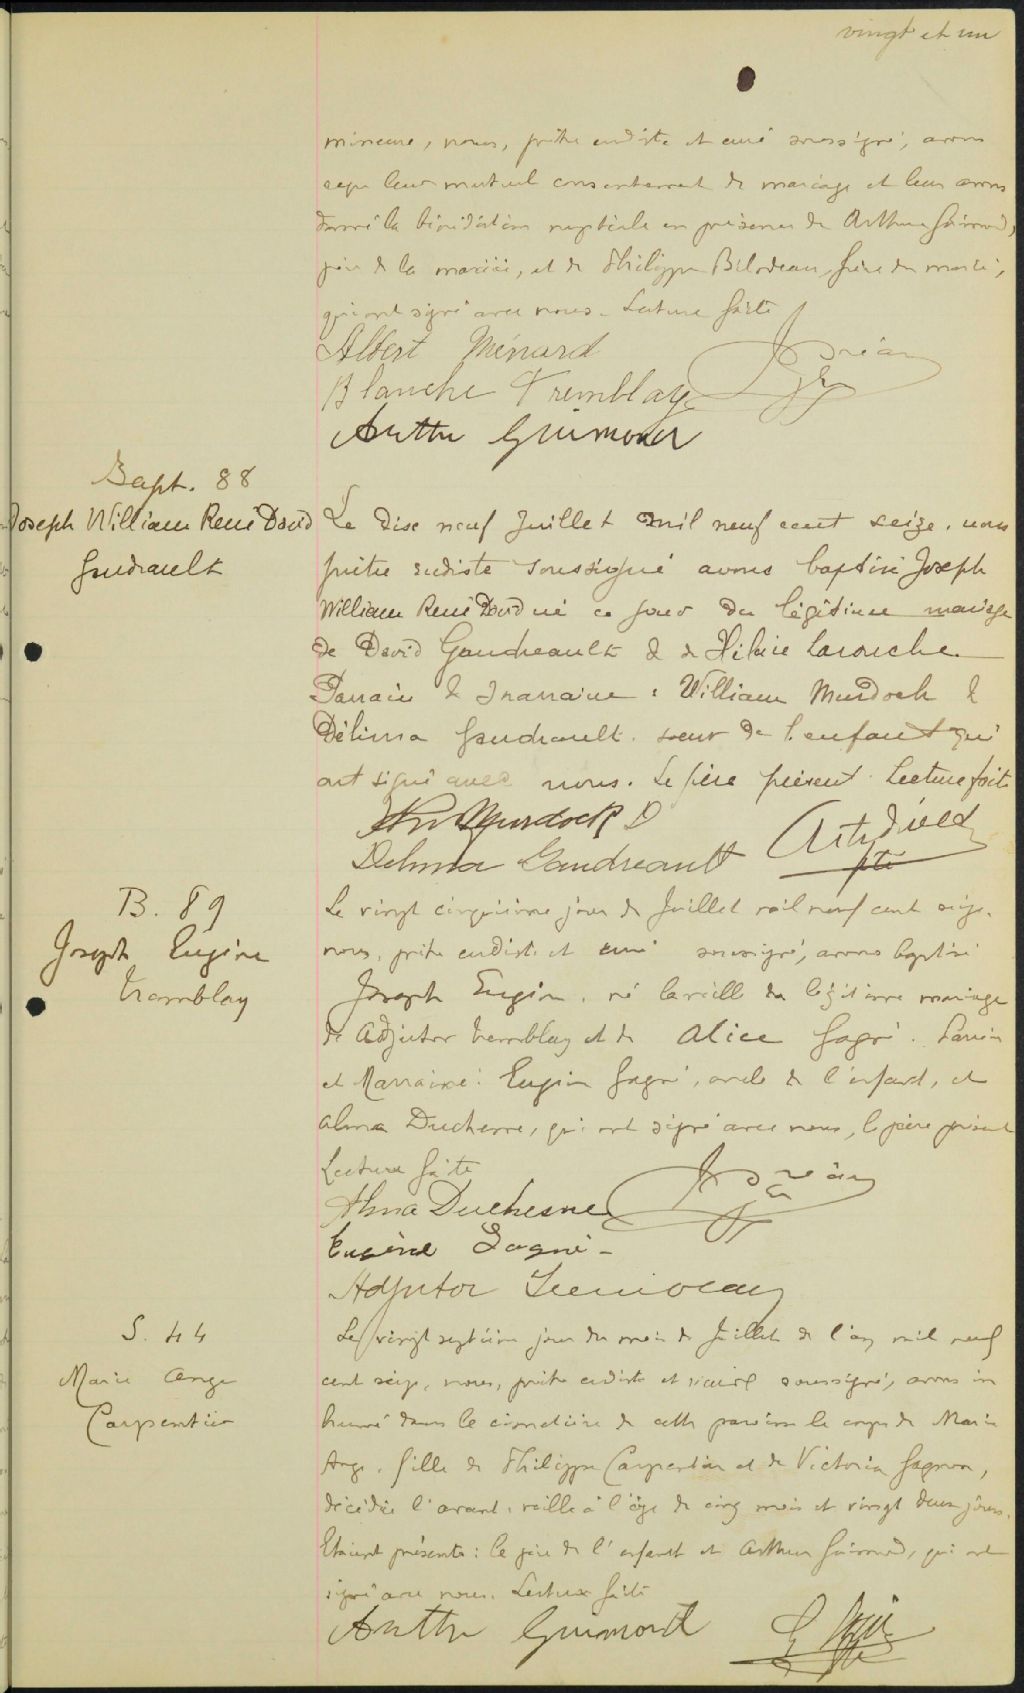 vingt et un
mineure, nous, prêtre eudiste et curé soussigné, avons
reçu leur mutuel consentement de mariage et leur avons
donné la bénédiction nuptiale en présence de Arthur Guimond,
père de la mariée, et de Philippe Bilodeau, frère du marié,
qui ont signé avec nous. Lecture faite
Albert Ménard
Blanche Tremblay
Arthur Guimond
Bapt. 88
Joseph William René David
Gaudreault
Le dix neuf Juillet mil neuf cent seize, nous
prêtre eudiste soussigné avons baptisé Joseph
William René David né ce jour du légitime mariage
de David Gaudreault & de Hilaire Larouche
Parrain & marraine : William Murdoch &
Délima Gaudreault. soeur de l'enfant qui
ont signé avec nous. Le père présent. Lecture faite
Murdock
Delima Gaudreault
ptre
B. 89
Joseph Eugène
Tremblay
Le vingt cinquième jour de Juillet mil neuf cent seize,
nous, prêtre eudiste et curé soussigné, avons baptisé
Joseph Eugène, né la veille du légitime mariage
de Adjutor Tremblay et de Alice Gagné. Parrain
et Marraine : Eugène Gagné, oncle de l'enfant, et
Alma Duchesne, qui ont signé avec nous, le père présent
Lecture faite
Alma Duchesne
Eugène Gagné
Adjutor Tremblay
S. 44
Marie Ange
Carpentier
Le vingt septième jour du mois de Juillet de l'an mil neuf
cent seize, nous, prêtre eudiste et vicaire soussigné, avons in
humé dans le cimetière de cette paroisse le corps de Marie
Ange, fille de Philippe Carpentier et de Victoria Gagnon,
décédée l'avant-veille à l'âge de cinq mois et vingt deux jours.
Etaient présents : le père de l'enfant et Arthur Guimond, qui ont
signé avec nous. Lecture faite
Arthur Guimond